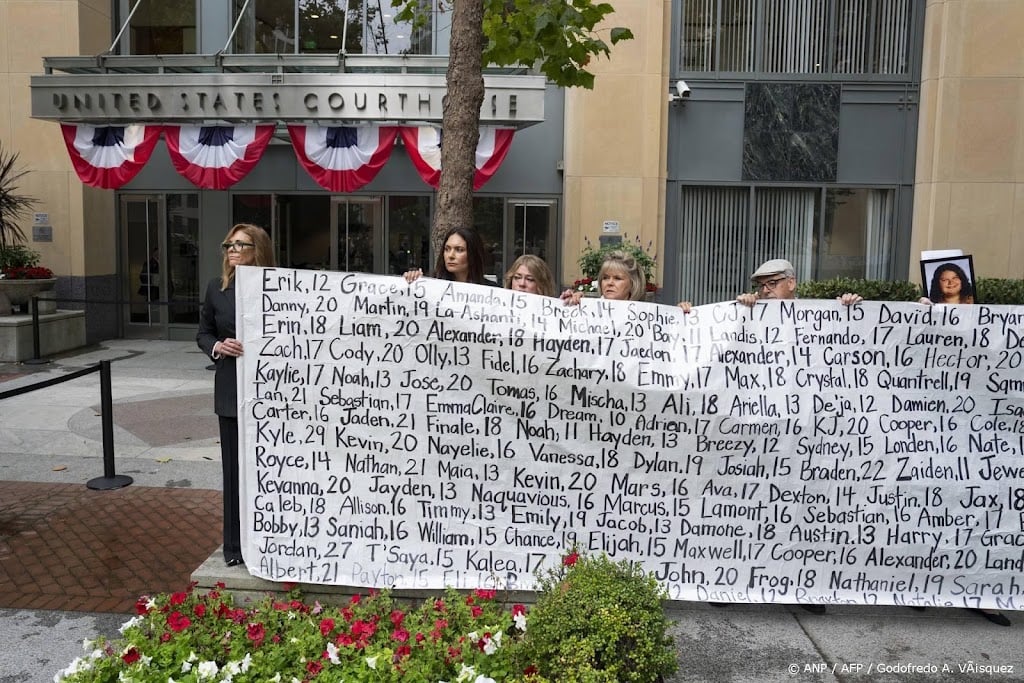 UNITED STATES COURTHOUSE
Erik, 12 Grace, 15 Amanda, 15 Breck, 14 Sophie, 13 CJ, 17 Morgan, 15 David, 16 Bryan
Danny, 20 Martin, 19 La-Ashanti, 14 Michael, 20 Bay, 11 Landis, 12 Fernando, 17 Lauren, 18
Erin, 18 Liam, 20 Alexander, 18 Hayden, 17 Jaedon, 17 Alexander, 14 Carson, 16 Hector, 20
Zach, 17 Cody, 20 Olly, 13 Fidel, 16 Zachary, 18 Emmy, 17 Max, 18 Crystal, 18 Quantrell, 19 Sam
Kaylie, 17 Noah, 13 Jose, 20 Tomas, 16 Mischa, 13 Ali, 18 Ariella, 13 De'ja, 12 Damien, 20 Isa
Ian, 21 Sebastian, 17 EmmaClaire, 16 Dream, 10 Adrian, 17 Carmen, 16 KJ, 20 Cooper, 16 Cole, 18
Carter, 16 Jaden, 21 Finale, 18 Noah, 11 Hayden, 13 Breezy, 12 Sydney, 15 Londen, 16 Nate,
Kyle, 29 Kevin, 20 Nayelie, 16 Vanessa, 18 Dylan, 19 Josiah, 15 Braden, 22 Zaiden, 11 Jewe
Royce, 14 Nathan, 21 Maia, 13 Kevin, 20 Mars, 16 Ava, 17 Dexton, 14 Justin, 18 Jax, 18
Kevanna, 20 Jayden, 13 Naquavious, 16 Marcus, 15 Lamont, 16 Sebastian, 16 Amber, 17
Caleb, 18 Allison, 16 Timmy, 13 Emily, 19 Jacob, 13 Damone, 18 Austin, 13 Harry, 17 Grac
Bobby, 13 Saniah, 16 William, 15 Chance, 19 Elijah, 15 Maxwell, 17 Cooper, 16 Alexander, 20 Land
Jordan, 27 T'Saya, 15 Kalea, 17 John, 20 Frog, 18 Nathaniel, 19 Sarah
Albert, 21 Payton, 15 Eli, 16 Daniel, 12 Braxton, 12 Natalie, 17
© ANP / AFP / Godofredo A. VÃ¡squez